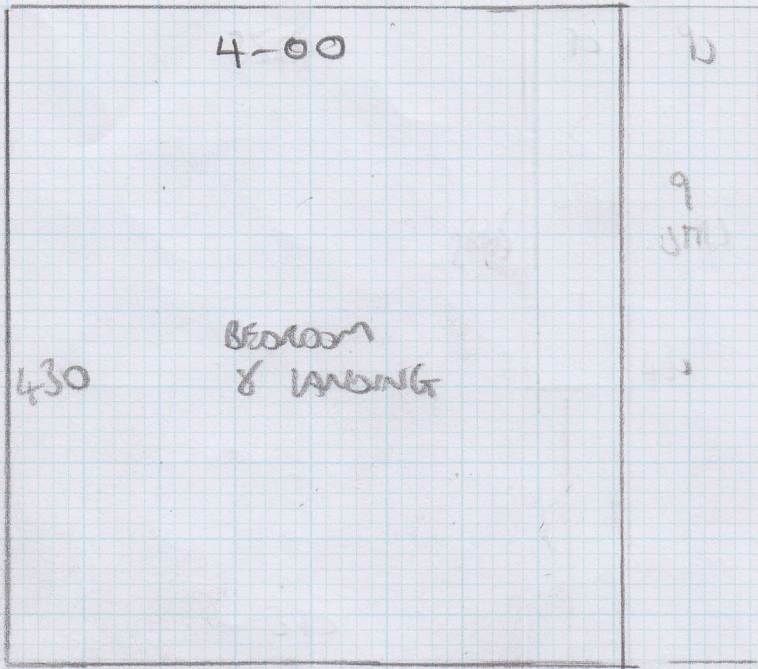 4-00
BEDROOM
& LANDING
430
9